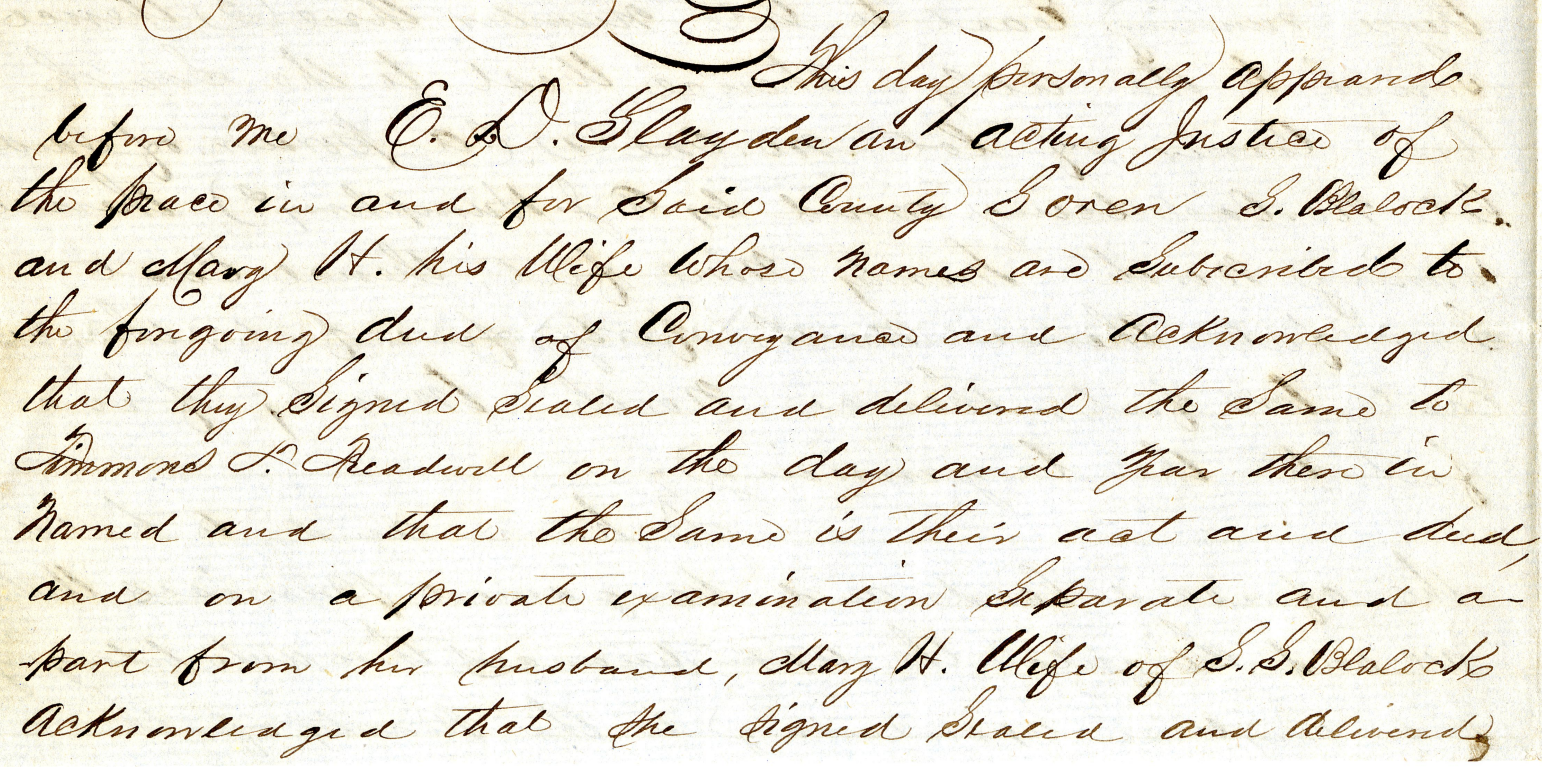 This day personally appeared
before me E. D. Slayden an acting Justice of
the peace in and for Said County Goren G. Blalock
and Mary H. his Wife whose names are Subscribed to
the foregoing deed of Conveyance and acknowledged
that they Signed Sealed and delivered the Same to
Timmons L. Treadwell on the day and year there in
Named and that the Same is their act and deed,
and on a private examination Separate and a-
part from her husband, Mary H. Wife of G. G. Blalock
acknowledged that she signed Sealed and delivered,